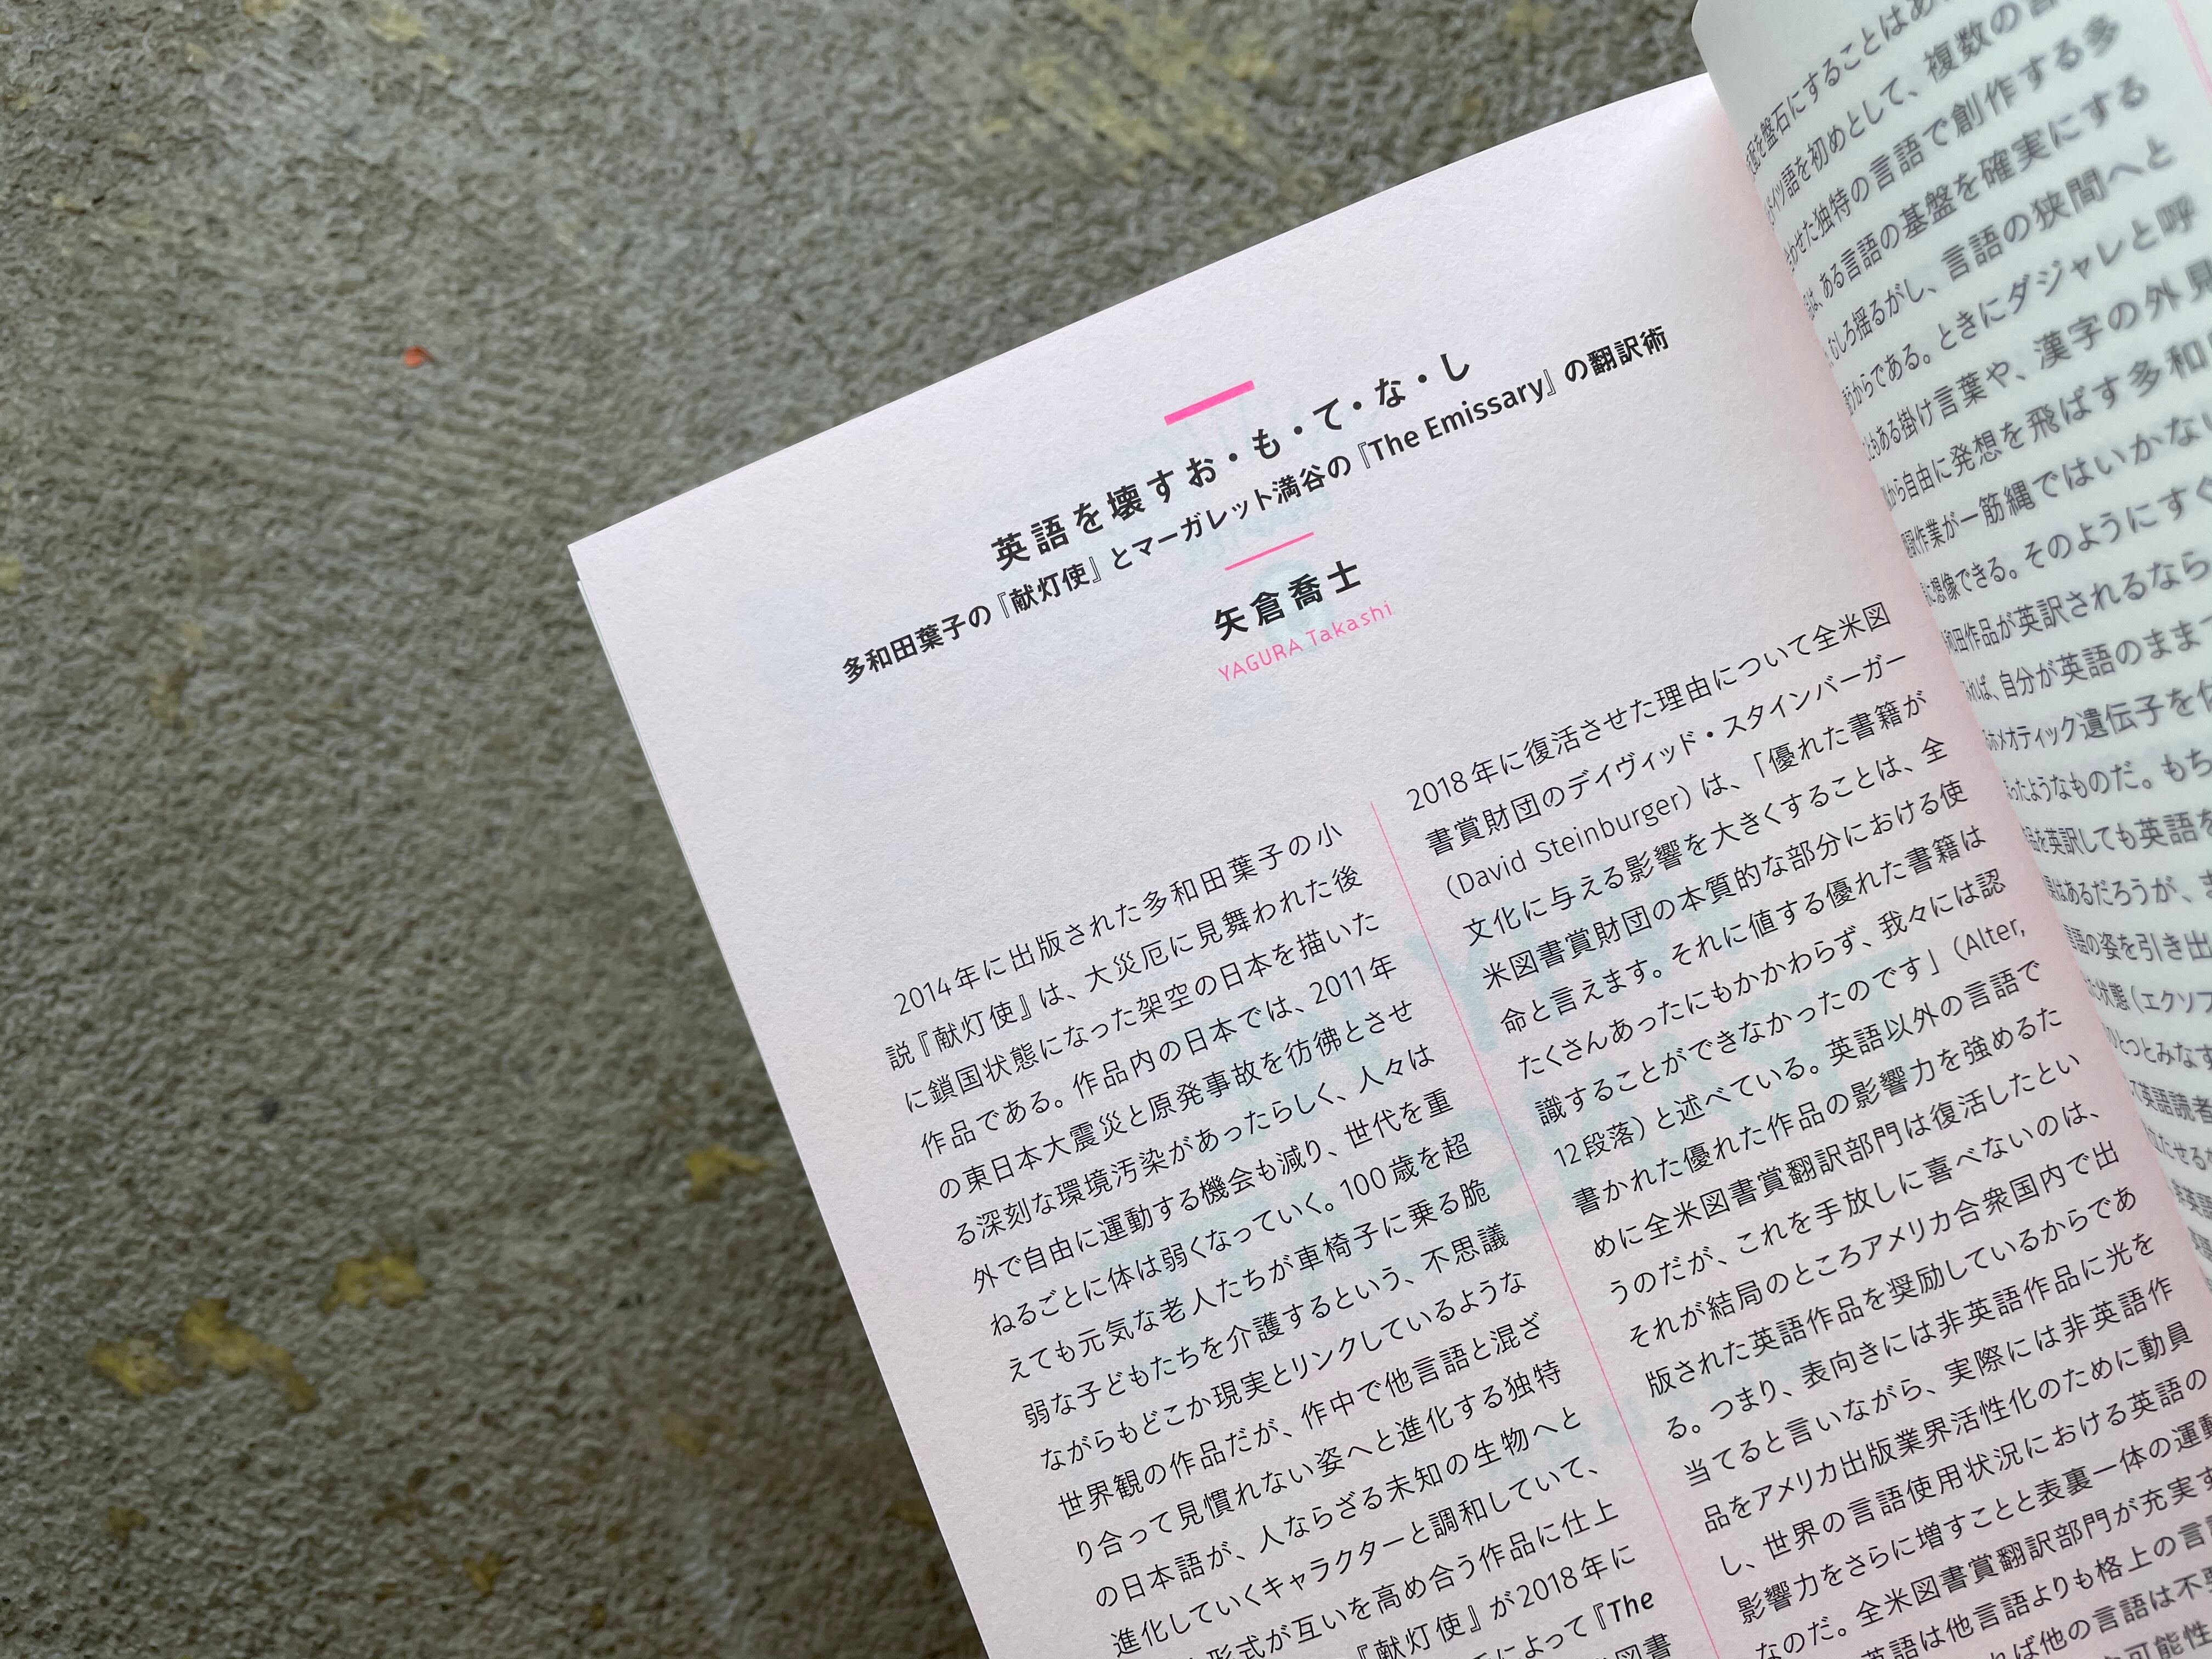 英語を壊すお・も・て・な・し
多和田葉子の『献灯使』とマーガレット満谷の『The Emissary』の翻訳術
矢倉喬士
YAGURA Takashi
2014年に出版された多和田葉子の小
説『献灯使』は、大災厄に見舞われた後
に鎖国状態になった架空の日本を描いた
作品である。作品内の日本では、2011年
の東日本大震災と原発事故を彷彿とさせ
る深刻な環境汚染があったらしく、人々は
外で自由に運動する機会も減り、世代を重
ねるごとに体は弱くなっていく。100歳を超
えても元気な老人たちが車椅子に乗る脆
弱な子どもたちを介護するという、不思議
ながらもどこか現実とリンクしているような
世界観の作品だが、作中で他言語と混ざ
り合って見慣れない姿へと進化する独特
の日本語が、人ならざる未知の生物へと
進化していくキャラクターと調和していて、
形式が互いを高め合う作品に仕上
『献灯使』が2018年に
によって『The
図書
2018年に復活させた理由について全米図
書賞財団のデイヴィッド・スタインバーガー
（David Steinburger）は、「優れた書籍が
文化に与える影響を大きくすることは、全
米図書賞財団の本質的な部分における使
命と言えます。それに値する優れた書籍は
たくさんあったにもかかわらず、我々には認
識することができなかったのです」（Alter,
12段落）と述べている。英語以外の言語で
書かれた優れた作品の影響力を強めるた
めに全米図書賞翻訳部門は復活したとい
うのだが、これを手放しに喜べないのは、
それが結局のところアメリカ合衆国内で出
版された英語作品を奨励しているからであ
る。つまり、表向きには非英語作品に光を
当てると言いながら、実際には非英語作
品をアメリカ出版業界活性化のために動員
し、世界の言語使用状況における英語の
影響力をさらに増すことと表裏一体の運動
なのだ。全米図書賞翻訳部門が充実す
英語は他言語よりも格上の言
れば他の言語は不要
可能性
盤石にすることはあ
イツ語を初めとして、複数の言
わせた独特の言語で創作する多
は、ある言語の基盤を確実にする
むしろ揺るがし、言語の狭間へと
うからである。ときにダジャレと呼
ともある掛け言葉や、漢字の外見
から自由に発想を飛ばす多和田
訳作業が一筋縄ではいかない
に想像できる。そのようにすぐ
和田作品が英訳されるなら
れば、自分が英語のまま
ホメオティック遺伝子を
ったようなものだ。もち
品を英訳しても英語を
はあるだろうが、ま
言語の姿を引き出
状態（エクソフ
ひとつとみなす
英語読者
立たせる